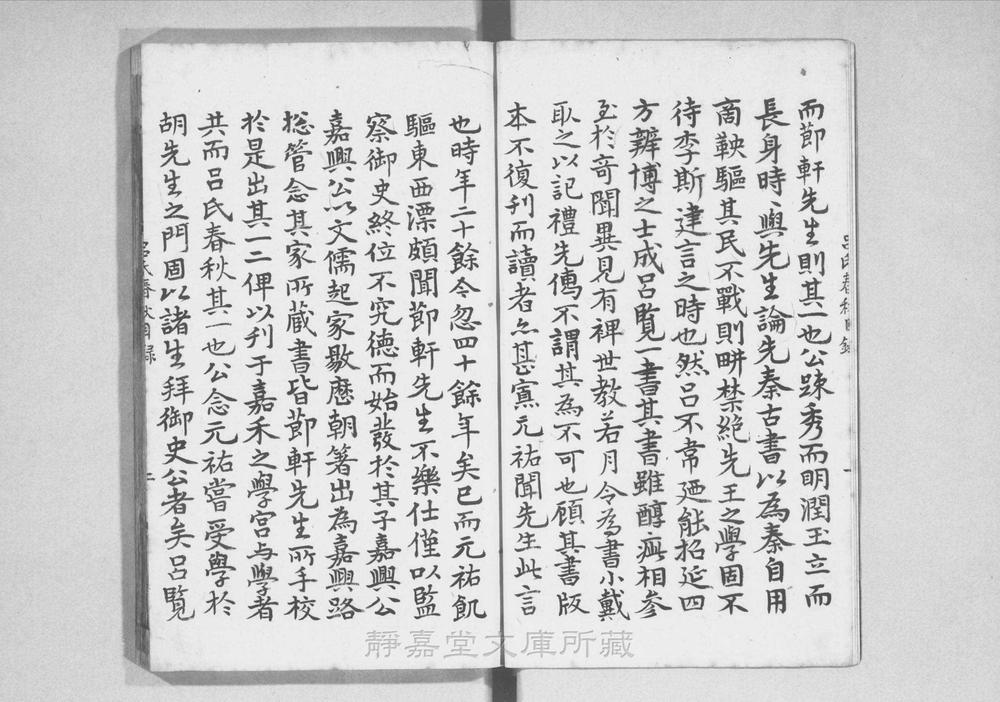 而節軒先生則其一也公踈秀而明潤玉立而
長身時〻與先生論先秦古書以為秦自用
商鞅驅其民不戰則畊禁絕先王之學固不
待李斯建言之時也然呂不韋廼能招延四
方辨博之士成呂覽一書其書雖醇疵相參
至於奇聞異見有裨世教若月令為書小戴
取之以記禮先傳不謂其為不可也頋其書版
本不復刊而讀者亦甚寡元祐聞先生此言
也時年二十餘今忽四十餘年矣已而元祐飢
驅東西漂頗聞節軒先生不樂仕僅以監
察御史終位不究德而始發於其子嘉興公
嘉興公以文儒起家敭歷朝著出為嘉興路
捴管念其家所藏書皆節軒先生所手校
於是出其一二俾以刋于嘉禾之學宮与學者
共而呂氏春秋其一也公念元祐嘗受學於
胡先生之門固以諸生拜御史公者矣呂覽
呂氏春秋目錄
一
呂氏春秋目録
二
靜嘉堂文庫所藏